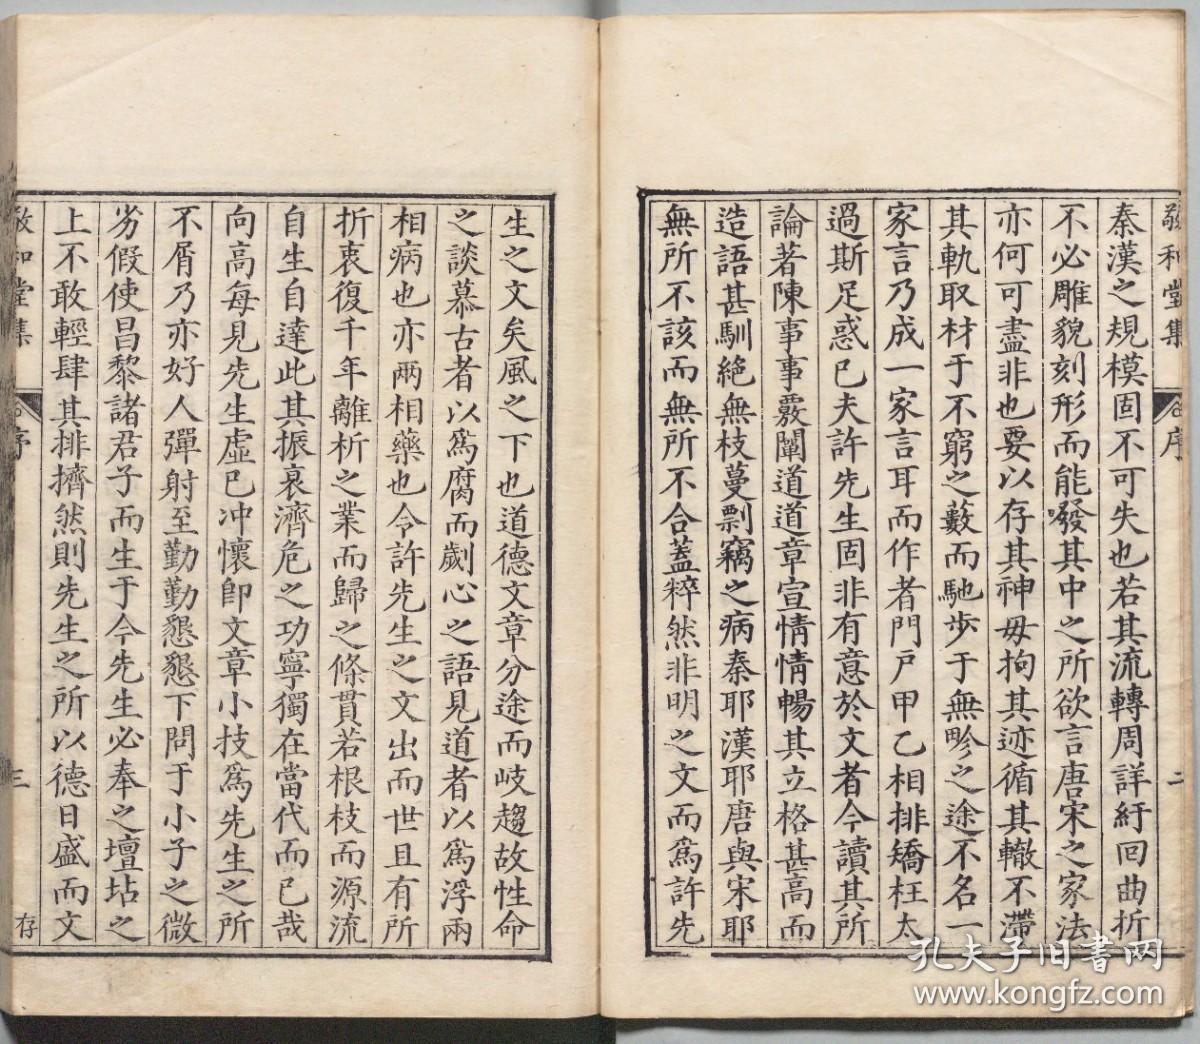 敬和堂集
序
二
秦漢之規模固不可失也若其流轉周詳紆回曲折
不必雕貌刻形而能發其中之所欲言唐宋之家法
亦何可盡非也要以存其神毋拘其迹循其轍不滯
其軌取材于不窮之藪而馳步于無畛之途不名一
家言乃成一家言耳而作者門戶甲乙相排矯枉太
過斯足惑已夫許先生固非有意於文者今讀其所
論著陳事事覈闡道道章宣情情暢其立格甚高而
造語甚馴絕無枝蔓剽竊之病秦耶漢耶唐與宋耶
無所不該而無所不合蓋粹然非明之文而爲許先
生之文矣風之下也道德文章分途而岐趨故性命
之談慕古者以爲腐而劌心之語見道者以爲浮兩
相病也亦兩相藥也今許先生之文出而世且有所
折衷復千年離析之業而歸之條貫若根枝而源流
自生自達此其振衰濟危之功寧獨在當代而已哉
向高每見先生虛已冲懷卽文章小技爲先生之所
不屑乃亦好人彈射至勤勤懇懇下問于小子之微
劣假使昌黎諸君子而生于今先生必奉之壇坫之
上不敢輕肆其排擠然則先生之所以德日盛而文
敬和堂集
序
三
存
孔夫子旧书网
www.kongfz.com